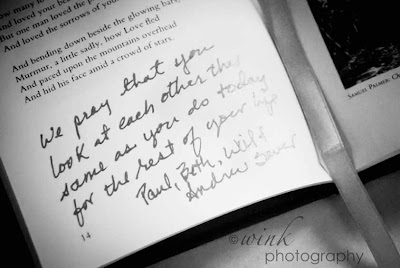 How many lo
And loved your beau
But one man loved the p
And loved the sorrows of your
And bending down beside the glowing bars,
Murmur, a little sadly, how Love fled
And paced upon the mountains overhead
And hid his face amid a crowd of stars.
We pray that you
look at each other the
same as you do today
for the rest of your life
Paul, Beth, Will &
Andrew
14
SAMUEL PALMER:
©wink
photography